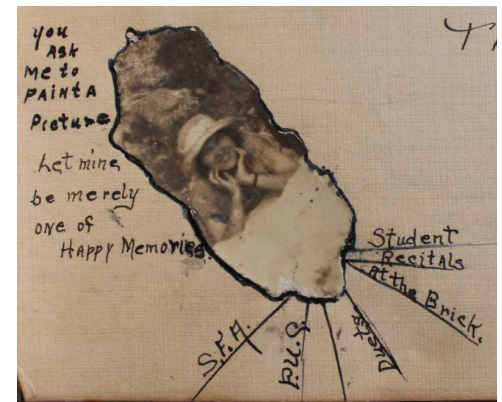 You
ASK
Me to
PAINT A
Picture
Let mine
be merely
one of
Happy Memories.
Student
Recitals
at the Brick.
Duets
S.F.A.